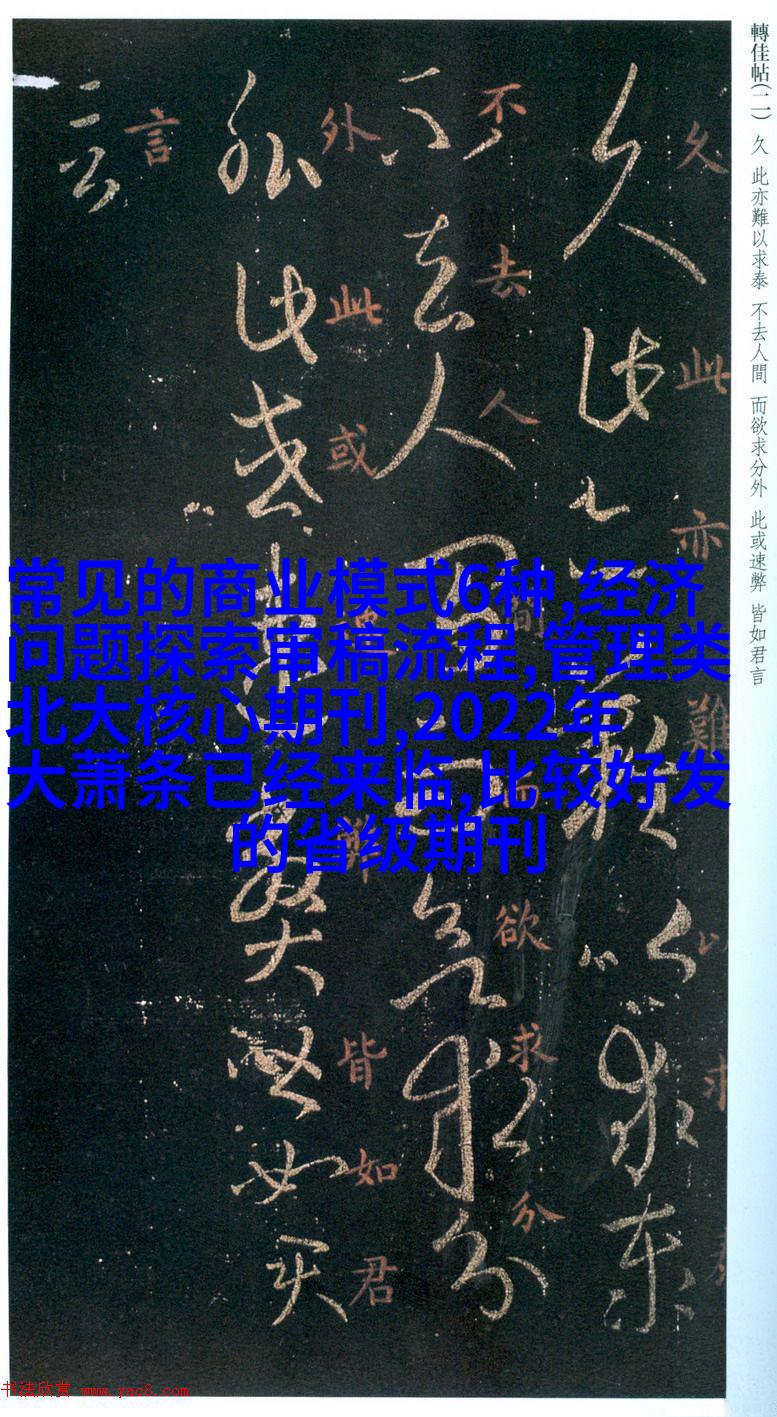 轉佳帖(二) 久 此亦難以求泰 不去人間 而欲求分外 此或速弊 皆如君言
久此亦難以求泰
久此亦難以求
不去人間而欲求分
不去人間而欲求分
外此或速弊皆如君
外此或速弊皆如君
言
言
常见的商业模式6种,经济
问题探索审稿流程,管理类
北大核心期刊,2022年
大萧条已经来临,比较好发
的省级期刊
书法欣赏 www.yac8.com